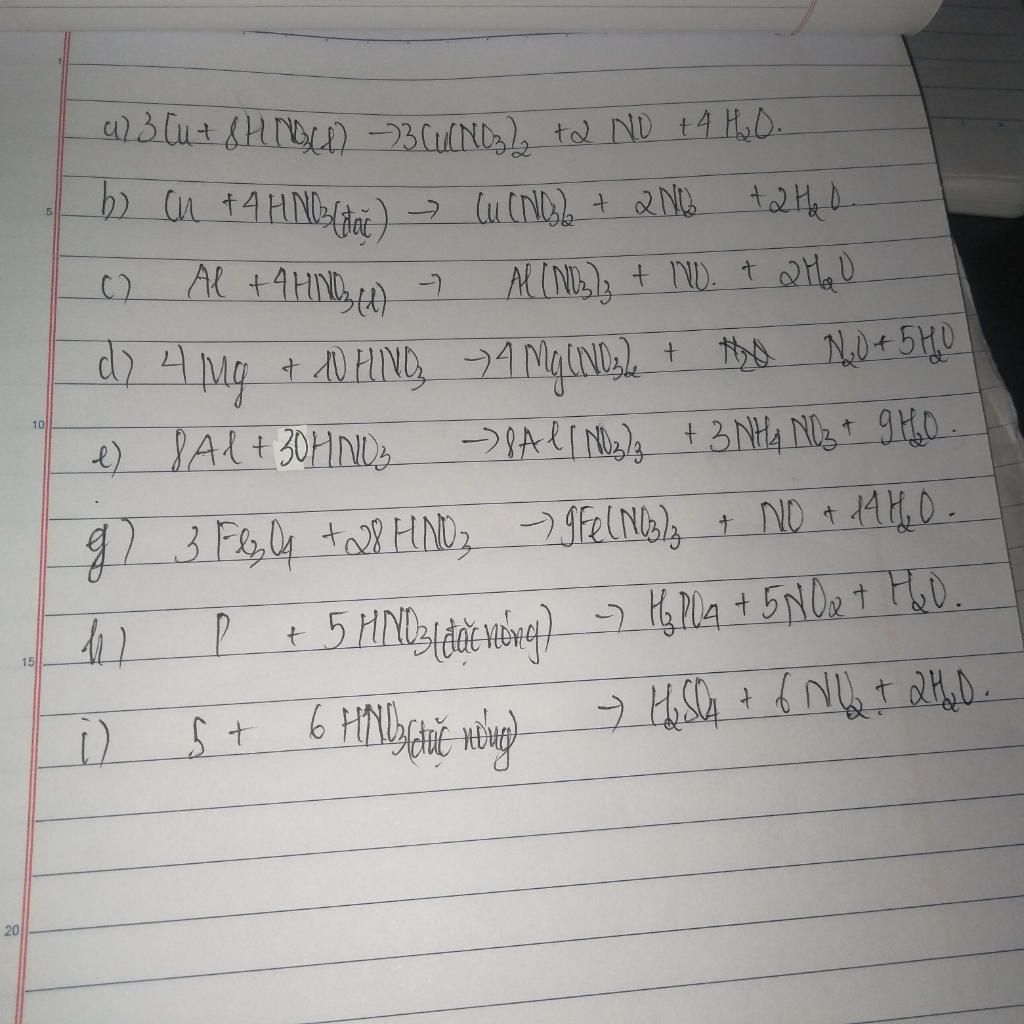 a) 3 Cu + 8HNO3(l) → 3Cu(NO3)2 + 2 NO + 4 H2O.
b) Cu + 4HNO3(đặc) → Cu(NO3)2 + 2NO2 + 2H2O.
c) Al + 4HNO3(l) → Al(NO3)3 + NO. + 2H2O
d) 4 Mg + 10 HNO3 → 4 Mg(NO3)2 + N2O N2O + 5H2O
e) 8Al + 30HNO3 → 8Al(NO3)3 + 3NH4NO3 + 9H2O.
g) 3 Fe3O4 + 28 HNO3 → 9Fe(NO3)3 + NO + 14H2O.
h) P + 5 HNO3(đặc nóng) → H3PO4 + 5NO2 + H2O.
i) S + 6 HNO3(đặc nóng) → H2SO4 + 6 NO2 + 2H2O.
1
5
10
15
20